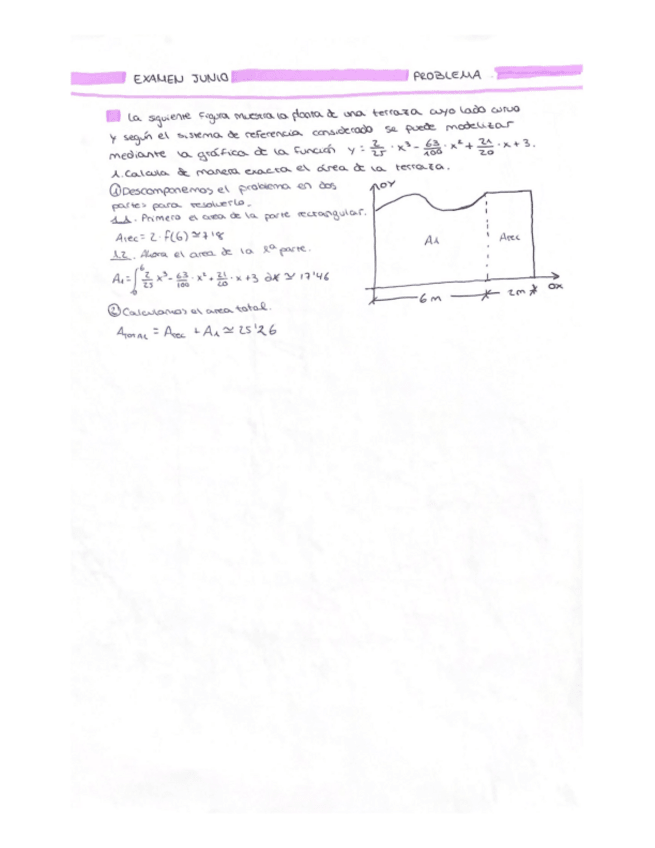 EXAMEN JUNIO PROBLEMA
La siguiente figura muestra la planta de una terraza cuyo lado curvo
y según el sistema de referencia considerado se puede modelizar
mediante la gráfica de la función y = 2/25 · x³ - 63/100 · x² + 21/20 · x + 3.
1. Calcula de manera exacta el área de la terraza.
① Descomponemos el problema en dos
partes para resolverlo.
1.1. Primero el area de la parte rectangular.
Arec = 2 · f(6) ≃ 7'8
1.2. Ahora el area de la 1ª parte.
A₁ = ∫₀⁶ 2/25 x³ - 63/100 · x² + 21/20 · x + 3 dx ≃ 17'46
② Calculamos el area total.
ATOTAL = Arec + A₁ ≃ 25'26
OY
A₁
Arec
OX
6 m
2 m